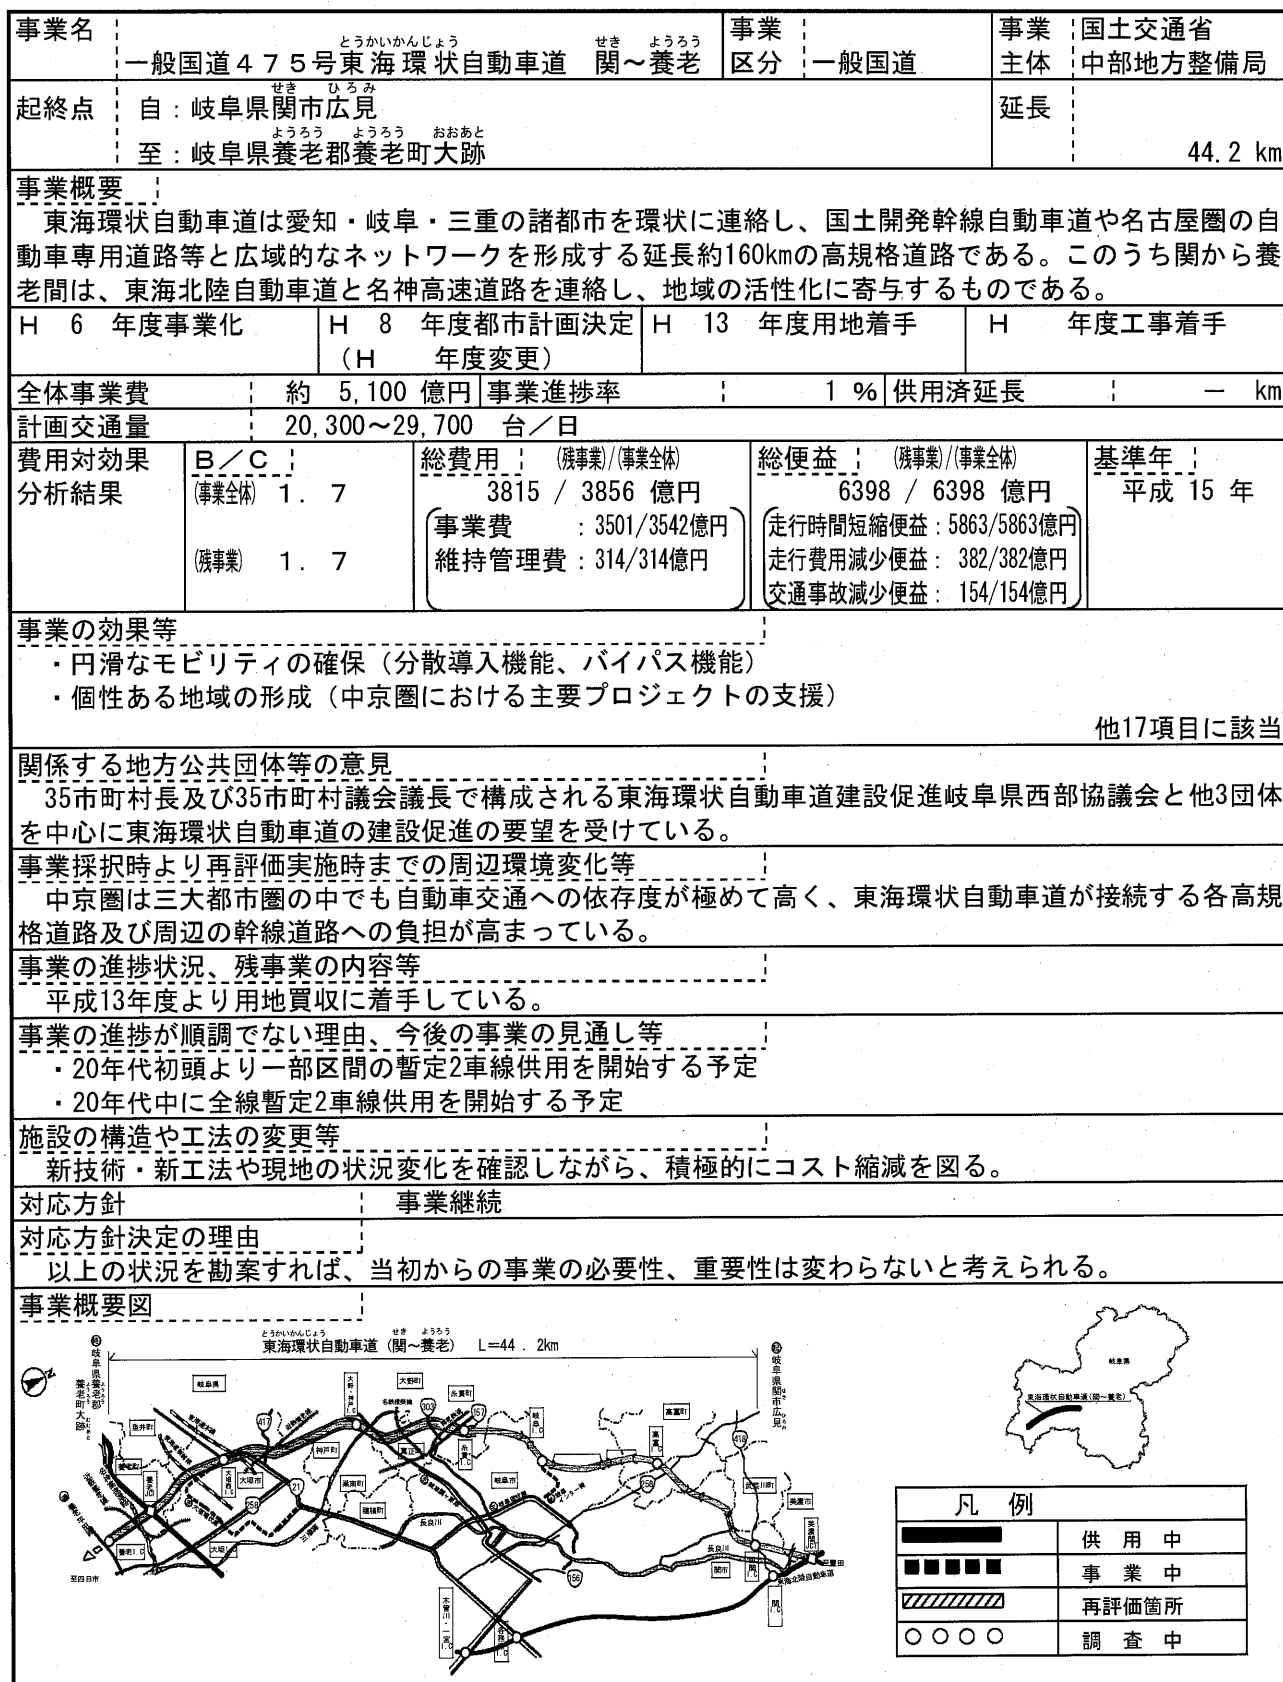 事業名
とうかいかんじょう せき ようろう
一般国道４７５号東海環状自動車道　関～養老
事業
区分
一般国道
事業
主体
国土交通省
中部地方整備局
起終点
せき ひろみ
自：岐阜県関市広見
ようろう ようろう おおあと
至：岐阜県養老郡養老町大跡
延長
44.2 km
事業概要
東海環状自動車道は愛知・岐阜・三重の諸都市を環状に連絡し、国土開発幹線自動車道や名古屋圏の自
動車専用道路等と広域的なネットワークを形成する延長約160kmの高規格道路である。このうち関から養
老間は、東海北陸自動車道と名神高速道路を連絡し、地域の活性化に寄与するものである。
Ｈ　6　年度事業化
Ｈ　8　年度都市計画決定
（Ｈ　　年度変更）
Ｈ　13　年度用地着手
Ｈ　　年度工事着手
全体事業費　約　5,100 億円
事業進捗率　1 ％
供用済延長　－ km
計画交通量　20,300～29,700　台／日
費用対効果
分析結果
Ｂ／Ｃ
(事業全体) １．７
(残事業) １．７
総費用 (残事業)/(事業全体)
3815 / 3856 億円
事業費　：3501/3542億円
維持管理費：314/314億円
総便益 (残事業)/(事業全体)
6398 / 6398 億円
走行時間短縮便益：5863/5863億円
走行費用減少便益： 382/382億円
交通事故減少便益： 154/154億円
基準年
平成 15 年
事業の効果等
・円滑なモビリティの確保（分散導入機能、バイパス機能）
・個性ある地域の形成（中京圏における主要プロジェクトの支援）
他17項目に該当
関係する地方公共団体等の意見
35市町村長及び35市町村議会議長で構成される東海環状自動車道建設促進岐阜県西部協議会と他3団体
を中心に東海環状自動車道の建設促進の要望を受けている。
事業採択時より再評価実施時までの周辺環境変化等
中京圏は三大都市圏の中でも自動車交通への依存度が極めて高く、東海環状自動車道が接続する各高規
格道路及び周辺の幹線道路への負担が高まっている。
事業の進捗状況、残事業の内容等
平成13年度より用地買収に着手している。
事業の進捗が順調でない理由、今後の事業の見通し等
・20年代初頭より一部区間の暫定2車線供用を開始する予定
・20年代中に全線暫定2車線供用を開始する予定
施設の構造や工法の変更等
新技術・新工法や現地の状況変化を確認しながら、積極的にコスト縮減を図る。
対応方針　事業継続
対応方針決定の理由
以上の状況を勘案すれば、当初からの事業の必要性、重要性は変わらないと考えられる。
事業概要図
とうかいかんじょう せき ようろう
東海環状自動車道（関～養老）　L=44．2km
岐阜県養老郡
養老町大跡
岐阜県関市広見
岐阜県
大野・神戸I.C
大野町
糸貫町
高富町
岐阜I.C
垂井町
417
303
157
418
養老町
養老JCT
大垣西I.C
大垣市
神戸町
真正町
糸貫I.C
岐阜市
高富I.C
258
21
巣南町
穂積町
長良川
武芸川町
美濃市
美濃関JCT
養老I.C
至四日市
156
長良川
関市
西関I.C
関I.C
至豊田
東海北陸自動車道
木曽川・一宮I.C
岐阜県
東海環状自動車道（関～養老）
凡　例
供　用　中
事　業　中
再評価箇所
調　査　中